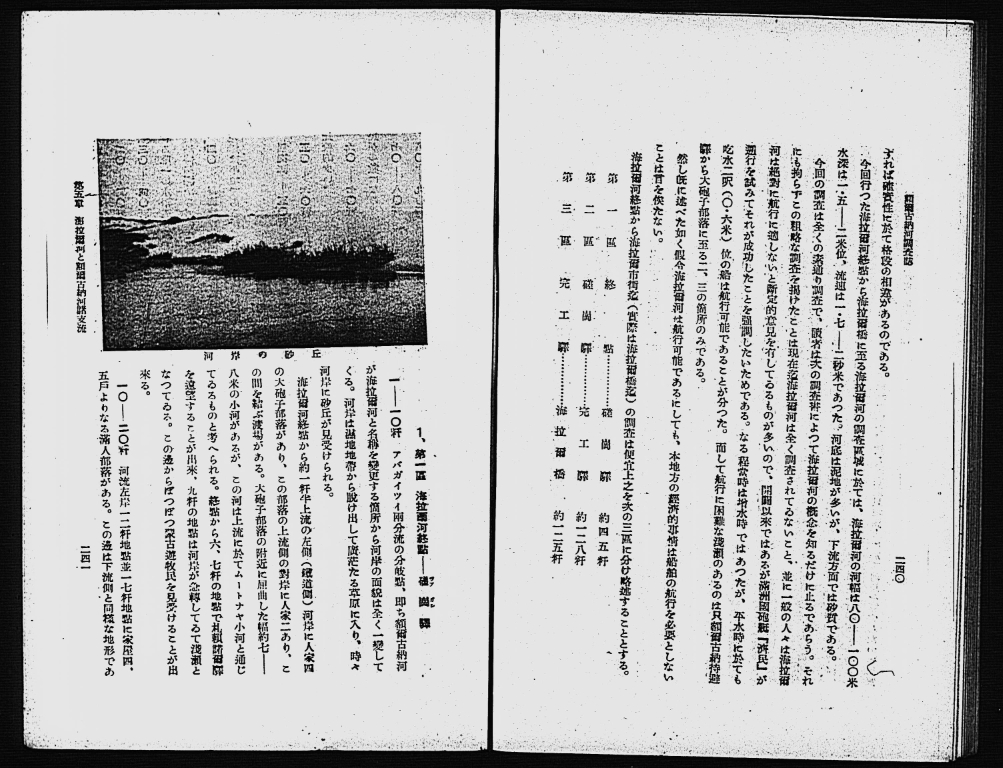 額爾古納河調査誌
一四〇
すれば確實性に於て格段の相違があるのである。
今回行つた海拉爾河終點から海拉爾橋に至る海拉爾河の調査區域に於ては、海拉爾河の河幅は八〇——一〇〇米
水深は一・五——二米位、流速は一・七——二秒米であつた。河底は泥地が多いが、下流方面では砂質である。
今回の調査は全くの素通り調査で、讀者は次の調査術によつて海拉爾河の概念を知るだけに止るであらう。それ
にも拘らずこの粗略な調査を揭げたことは現在迄海拉爾河は全く調査されてゐないこと、並に一般の人々は海拉爾
河は絕對に航行に適しないと斷定的意見を有してゐるものが多いので、開闢以來ではあるが滿洲國砲艇『濟民』が
遡行を試みてそれが成功したことを強調したいためである。なる程當時は增水時ではあつたが、平水時に於ても
吃水二呎（〇・六米）位の船は航行可能であることが分つた。而して航行に困難な淺瀨のあるのは只額爾古納特避
驛から大砲子部落に至る二、三の箇所のみである。
然し旣に述べた如く假令海拉爾河は航行可能であるにしても、本地方の經濟的事情は船舶の航行を必要としない
ことは言を俟たない。
海拉爾河終點から海拉爾市街迄（實際は海拉爾橋迄）の調査は便宜上之を次の三區に分け略述することとする。
第一區 終點………磋崗驛 約四五粁
第二區 磋崗驛………完工驛 約二八粁
第三區 完工驛………海拉爾橋 約一二五粁
河岸の砂丘
1、第一區 海拉爾河終點——磋崗驛
一——一〇粁 アバガイツイ兩分流の分岐點、卽ち額爾古納河
が海拉爾河と名稱を變更する箇所から河岸の面貌は全く一變して
くる。河岸は濕地地帶から脫け出して廣茫たる草原に入り、時々
河岸に砂丘が見受けられる。
海拉爾河終點から約一粁半上流の左側（鐵道側）河岸に人家四
の大砲子部落があり、この部落の上流側の對岸に人家二あり、こ
の間を結ぶ渡場がある。大砲子部落の附近に屈曲した幅約七——
八米の小河があるが、この河は上流に於てムートナヤ小河と通じ
てゐるものと考へられる。終點から六、七粁の地點で札賴諾爾驛
を遠望することが出來、九粁の地點は河岸が急轉してゐて淺瀨と
なつてゐる。この邊からぽつぽつ蒙古遊牧民を見受けることが出
來る。
一〇——二〇粁 河流左岸一二粁地點並一七粁地點に家屋四、
五戶よりなる滿人部落がある。この邊は下流側と同樣な地形であ
第五章 海拉爾河と額爾古納河諸支流
一四一